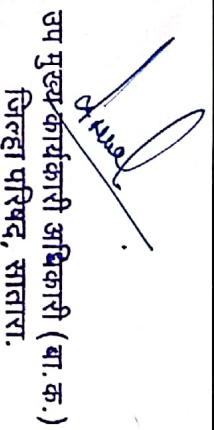 उप मुख्य कार्यकारी अधिकारी (बा.क.)
जिल्हा परिषद, सातारा.